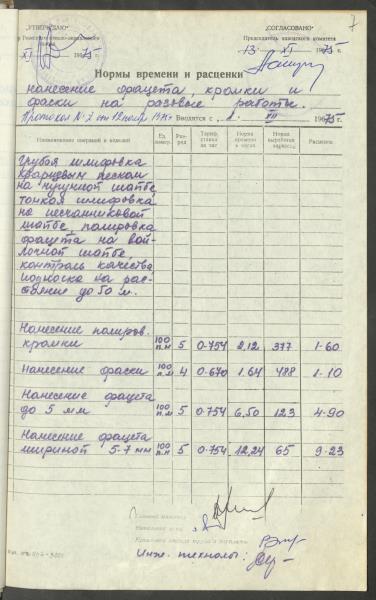 7
„УТВЕРЖДАЮ"
„СОГЛАСОВАНО"
Председатель заводского комитета
XI 1975
13 XI 1975
Нормы времени и расценки
нанесение фацета, кромки и
фаски на разовые работы.
Протокол №7 от Вводится с „1 VII 1975г.
Наименование операций и изделий
Ед. измер.
Раз-ряд
Тариф. ставка за час
Норма времени в часах
Норма выработки
Расценок
Грубая шлифовка
кварцевым песком
на чугунной шайбе,
тонкая шлифовка
на песчаниковой
шайбе, полировка
фацета на вой-
лочной шайбе
контроль качества
подноска на рас-
стояние до 50 м.
Нанесение полиров.
кромки 100 п.м 5 0-754 2,12 377 1-60
Нанесение фаски 100 п.м 4 0-670 1.64 488 1-10
Нанесение фацета
до 5 мм 100 п.м 5 0.754 6,50 123 4-90
Нанесение фацета
шириной 5-7 мм 100 п.м 5 0.754 12,24 65 9-23
Главный инженер
Начальник цеха
Инж. технолог: